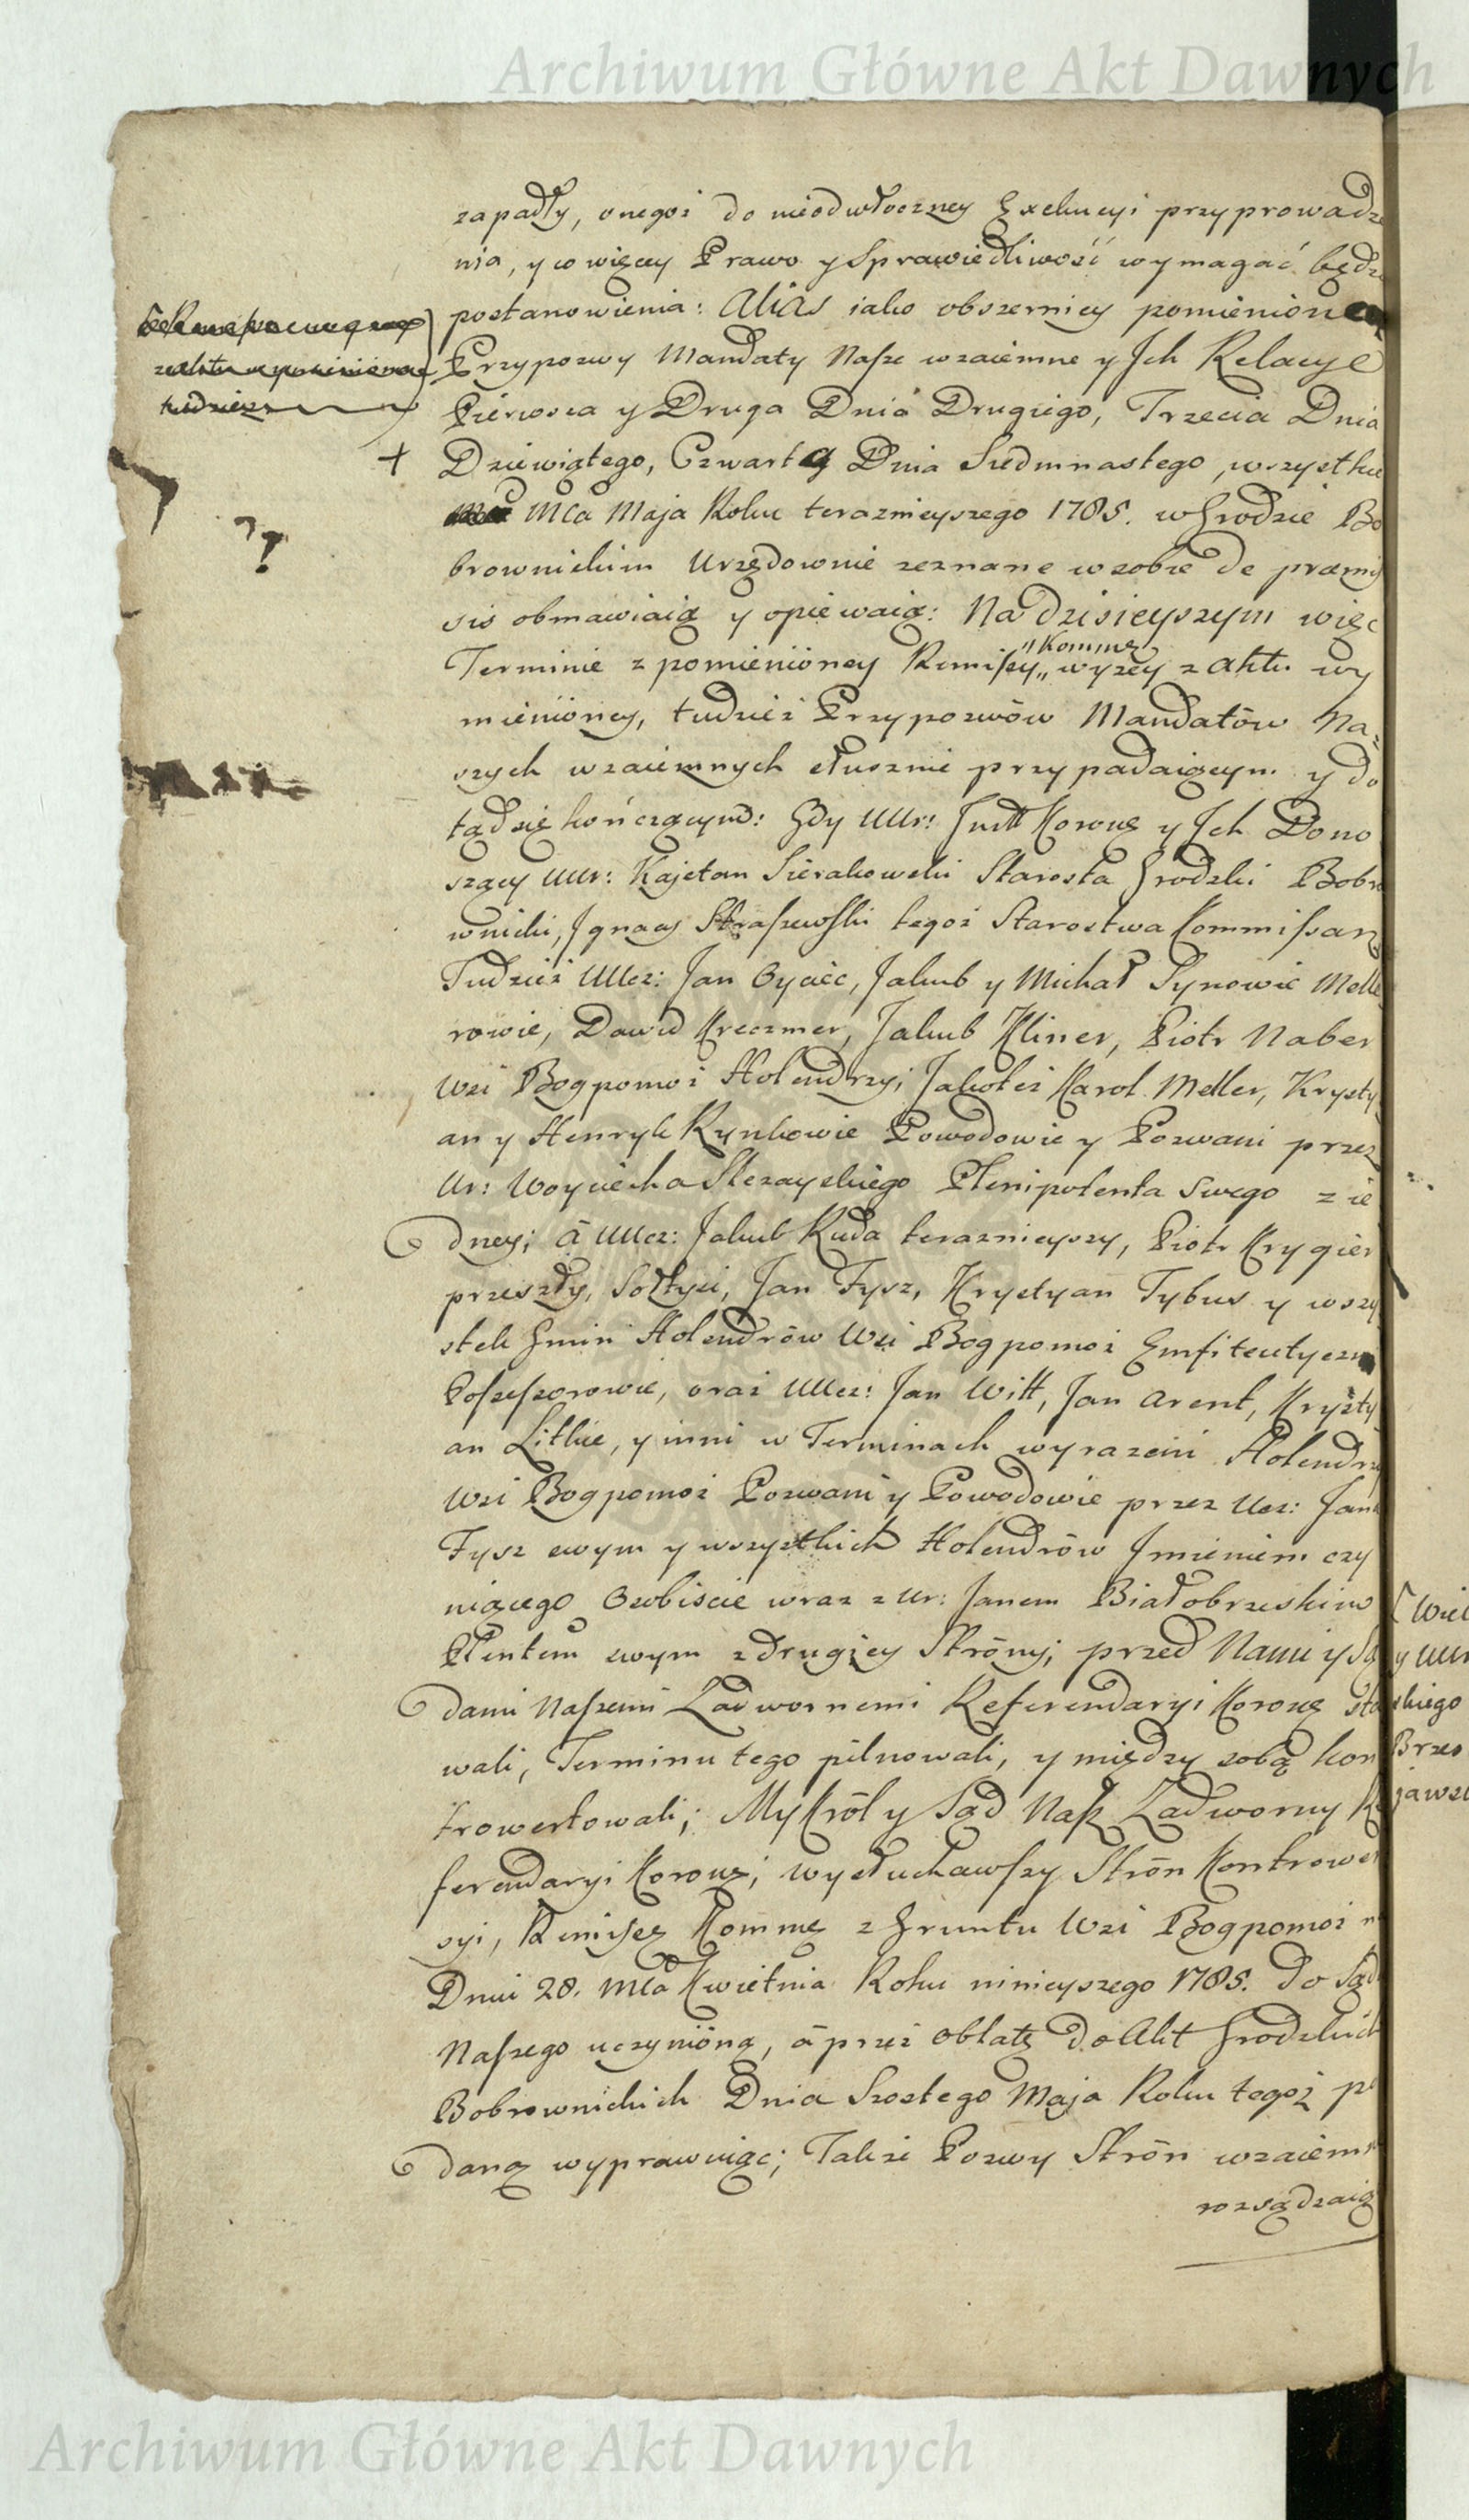 Archiwum Główne Akt Dawnych
zapadły, onegoż do nieodwłoczney Exekucyi przyprowadze
nia, y co więcey Prawo y Sprawiedliwość wymagać będzie
postanowienia: Alias iako obszerniey pomienione
Przypozwy Mandaty Nasze wzaiemne y Ich Relacye
tudzież
Pierwsza y Druga Dnia Drugiego, Trzecia Dnia
+ Dziewiątego, Czwarta Dnia Siedmnastego, wszystkie
Mca Maja Roku teraznieyszego 1785. w Grodzie Bo
brownickim Urzędownie zeznane w sobie de præmis
sis obmawiaią y opiewaią: Na dzisieyszym więc
„Kommę
Terminie z pomienióney Remissy„ wyżey z aktu wy
mienióney, tudzież Przypozwów Mandatów Na=
szych wzaiemnych słusznie przypadaiącym y do
tąd się kończącym: Gdy UUr: Instt Koronę y Ich Dono
szący UUr: Kajetan Sierakowski Starosta Grodzki Bobro
wnicki, Ignacy Straszewski tegoż Starostwa Kommissarz
Tudzież UUcz: Jan Oyciec, Jakub y Michał Synowie Melle
rowie, Dawid Kreczmer, Jakub Kliner, Piotr Naber
Wsi Bogpomoż Holendrzy; Jakoteż Karol Meller, Krysty
an y Henryk Rynkowie Powodowie y Pozwani przez
Ur: Woyciecha Skrzayskiego Plenipotenta Swego z ie
dney; á UUcz: Jakub Ruda teraznieyszy, Piotr Krygier
przeszły, Sołtysi, Jan Tysz, Krystyan Tybus y wszy
stek Gmin Holendrów Wsi Bogpomoż Emfiteutyczni
Possessorowie, oraz UUcz: Jan Witt, Jan Arent, Krysty
an Litkie, y inni w Terminach wyrażeni Holendrzy
Wsi Bogpomoż Pozwani y Powodowie przez Ucz: Jana
Tysz swym y wszystkich Holendrów Imieniem czy
niącego Osobiscie wraz z Ur: Janem Białobrzeskim
Plentem swym z drugiey Stróny; przed Nami y Są
dami Naszemi Zadwornemi Referendaryi Koronę sta
wali, Terminu tego pilnowali, y między sobą kon
trowertowali; My Król y Sąd Nasz Zadworny Re
ferendaryi Koronę; wysłuchawszy Strón Kontrower
syi, Remissę Kommę z Gruntu Wsi Bogpomoż
Dnia 28. Mca Kwietnia Roku ninieyszego 1785. do Sądu
Naszego uczynióną, á przez Oblatę do Akt Grodzkich
Bobrownickich Dnia Szostego Maja Roku tegoż po
daną wyprawuiąc; Takze Pozwy Strón wzaiemne
rozsądzaiąc
Archiwum Główne Akt Dawnych